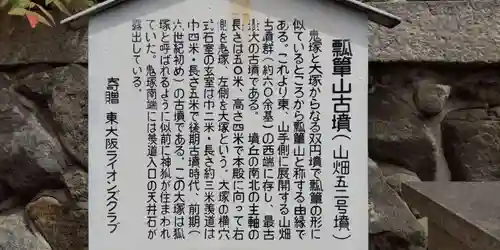 瓢箪山古墳(山畑五二号墳)
鬼塚と大塚からなる双円墳で瓢箪の形に
似ているところから瓢箪山と称する由縁で
ある。これより東、山手側に展開する山畑
古墳群(約六〇余基)の西端に存し、最古
最大の古墳である。墳丘の南北の主軸の
長さは五〇米、高さ四米で本殿に向って右
側を鬼塚、左側を大塚という。大塚の横穴
式石室の玄室は巾二米・長さ約三米羨道は
巾四米・長さ五米で後期古墳時代、前期(
六世紀初め)の古墳である。この大塚は狐
塚と呼ばれるように似前に神狐が住まれ
ていた。鬼塚南端には羨道入口の天井石が
露出している。
寄贈 東大阪ライオンズクラブ